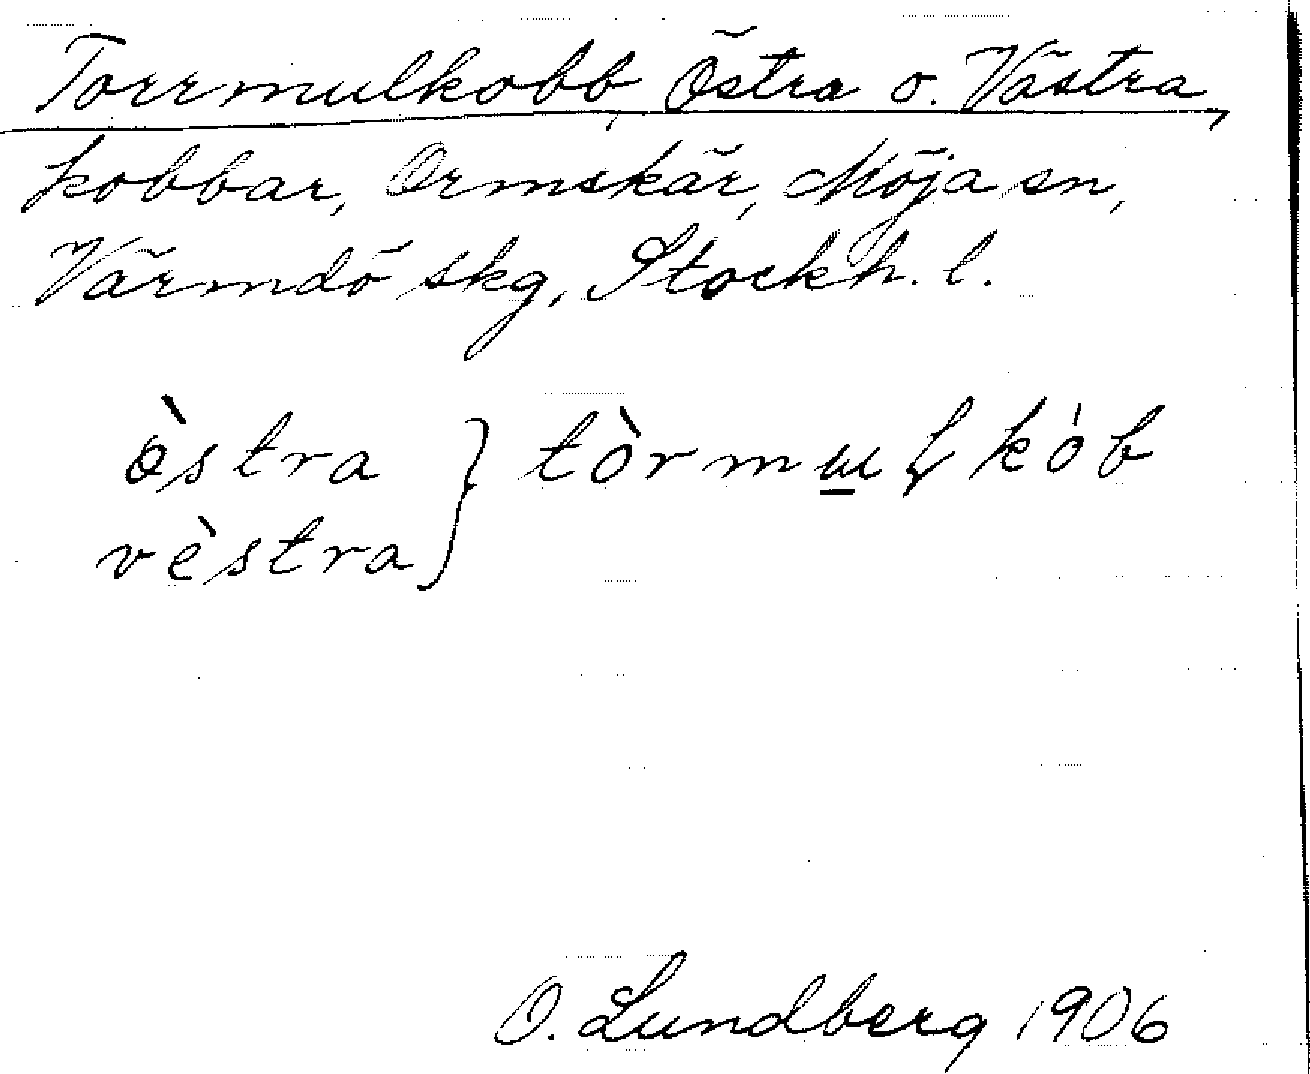 Torrmulkobb, Östra o. Västra,
kobbar, Ormskär, Möja sn,
Värmdö skg, Stockh. l.
östra } tòrmulkób
vèstra
O. Lundberg 1906